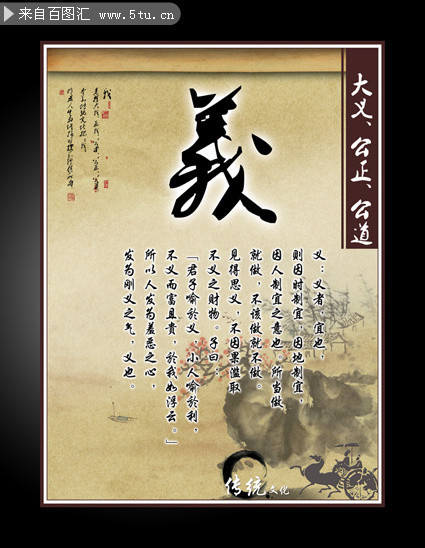 来自百图汇 www.5tu.cn
大义、公正、公道
義
义：义者，宜也，
则因时制宜，因地制宜，
因人制宜之意也。所当做
就做，不该做就不做。
见得思义，不因果滥取
不义之财物。子曰：
「君子喻於义，小人喻於利，
不义而富且贵，於我如浮云。」
所以人发为羞恶之心，
发为刚义之气，义也。
传统文化